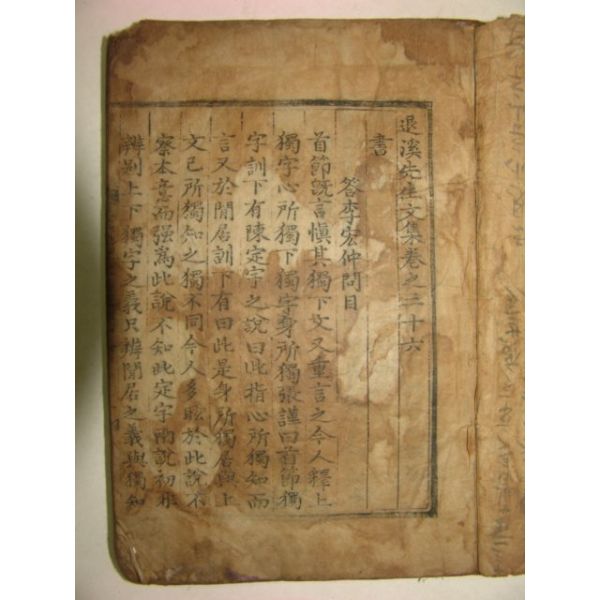 退溪先生文集卷之三十六
書
答李宏仲問目
首節旣言愼其獨下文又重言之今人釋上
獨字心所獨下獨字身所獨張謹曰首節獨
字訓下有陳定宇之說曰此指心所獨知而
言又於閒居訓下有曰此是身所獨居與上
文已所獨知之獨不同今人多眩於此說不
察本意而强爲此說不知此定宇兩說初非
辨别上下獨字之義只辨閒居之義與獨知